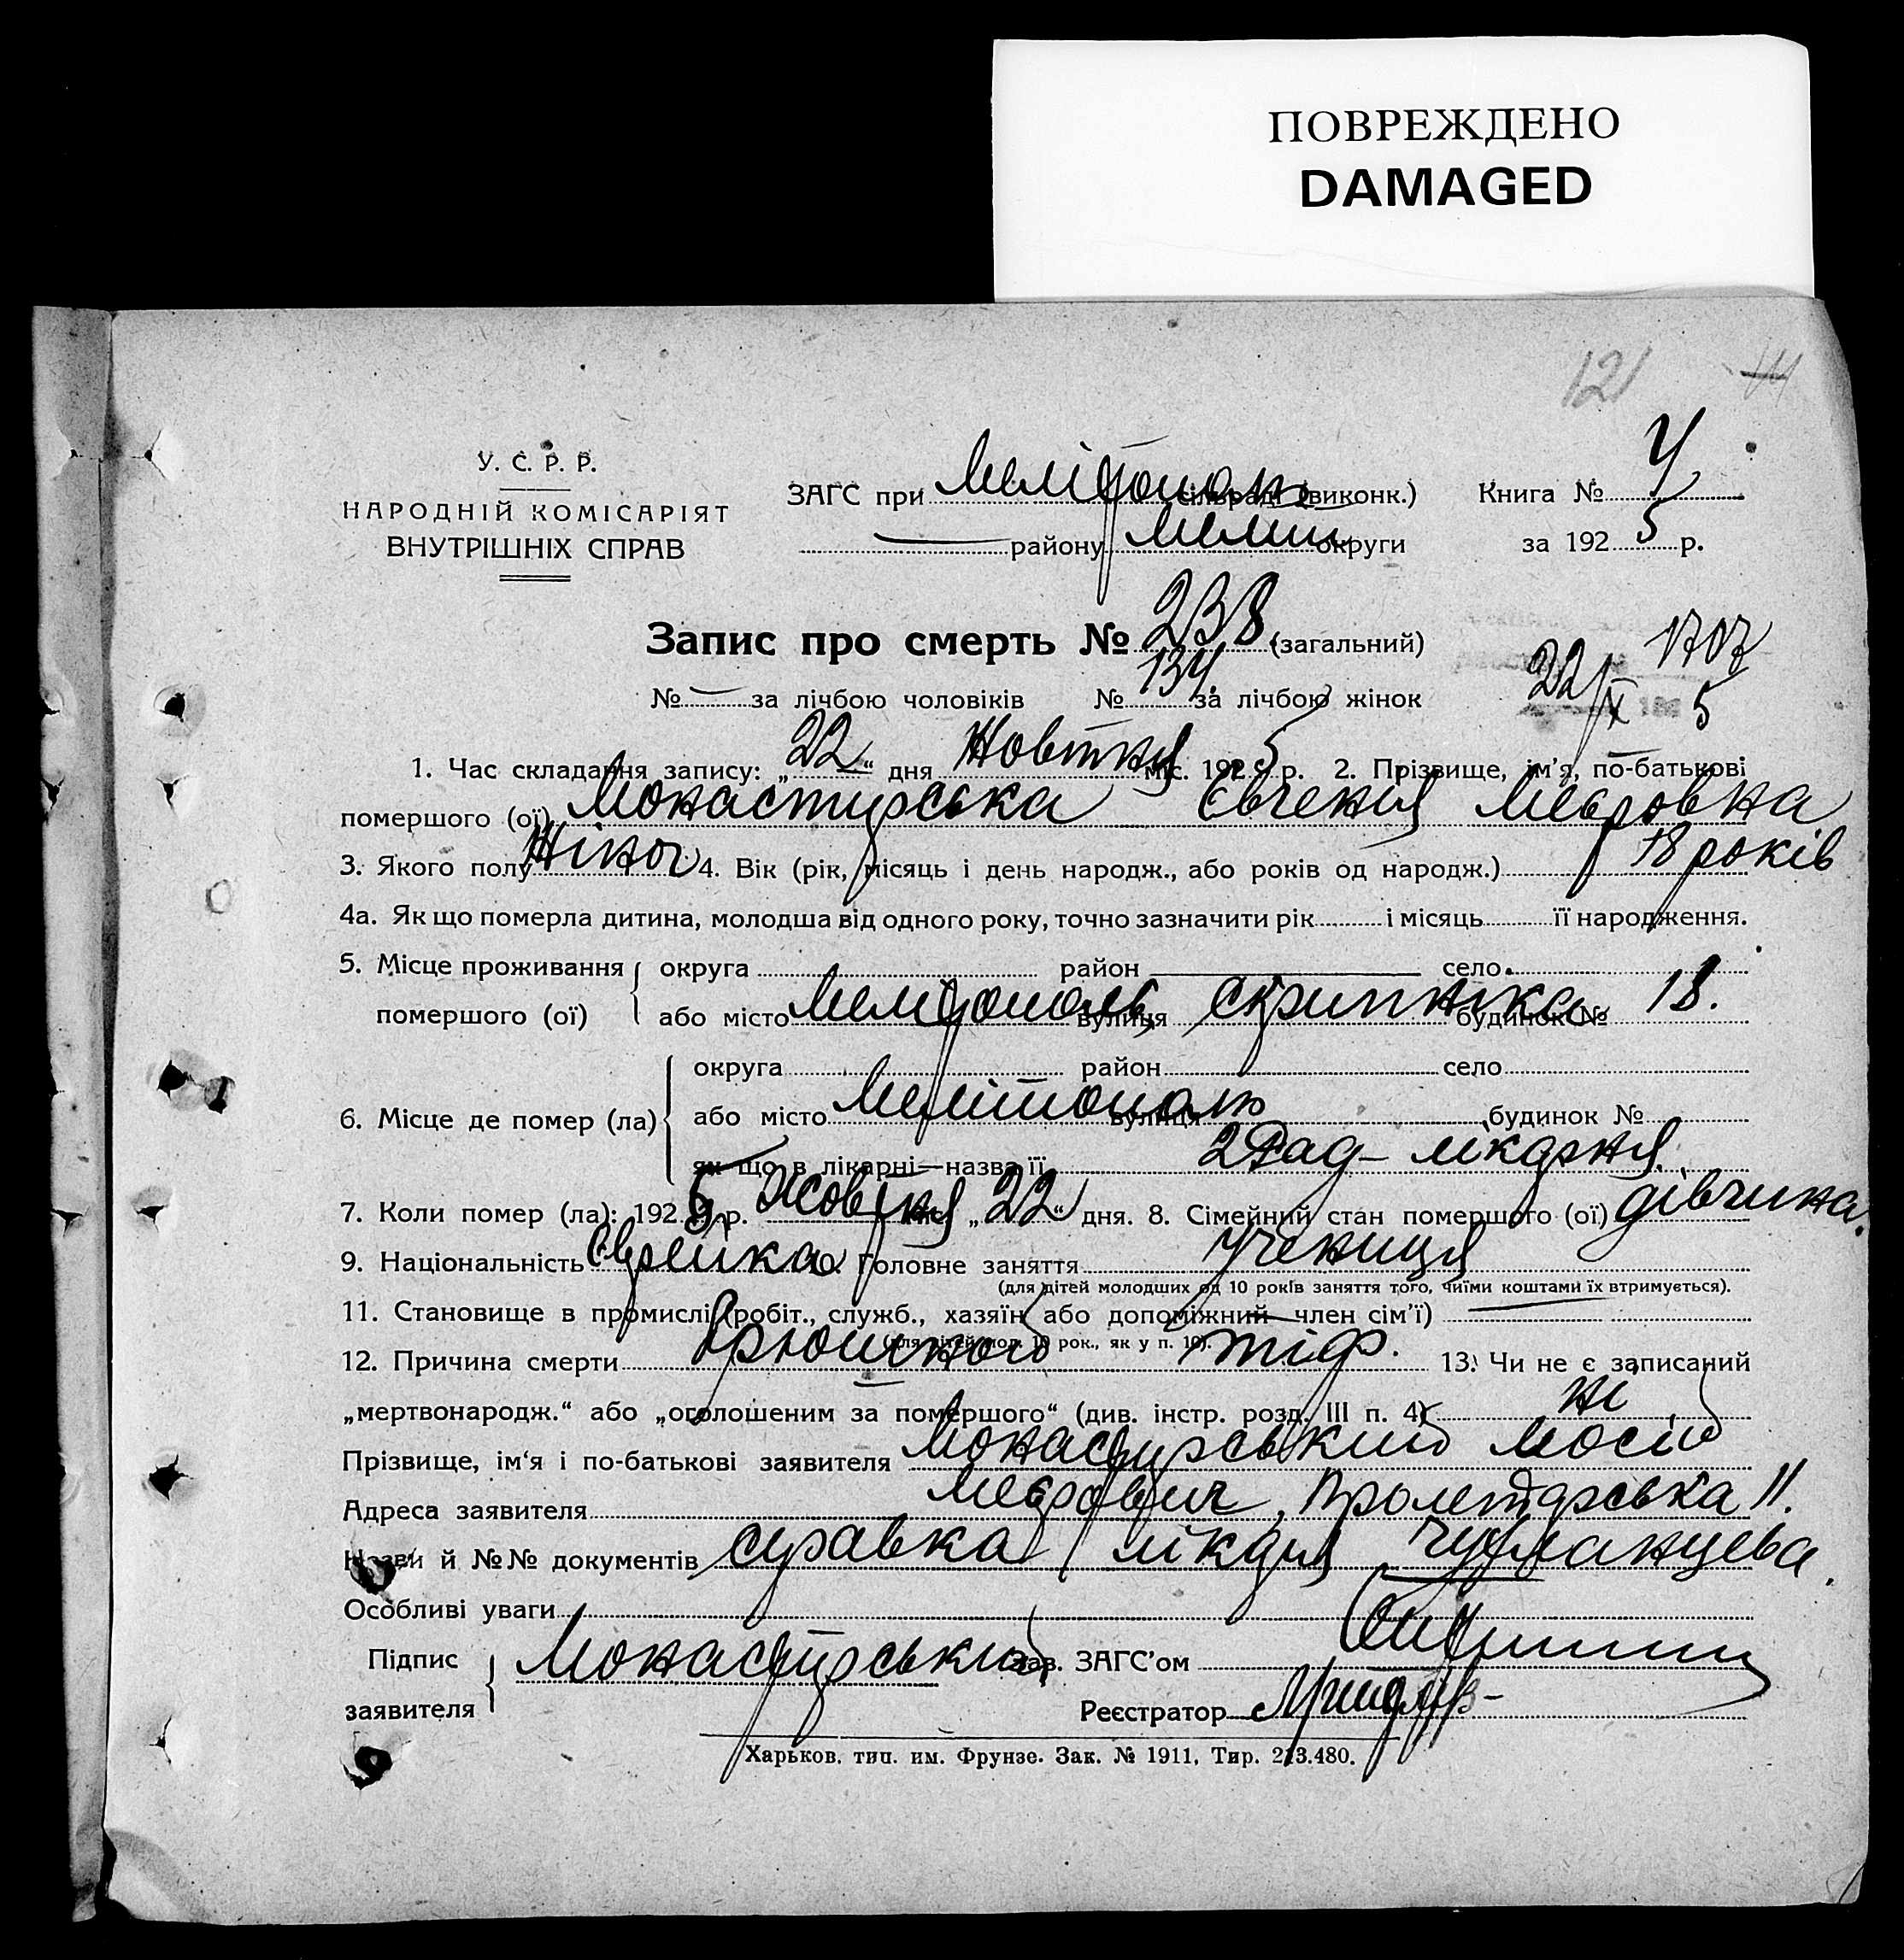 ПОВРЕЖДЕНО
DAMAGED
121
У. С. Р. Р.
НАРОДНІЙ КОМІСАРІЯТ
ВНУТРІШНІХ СПРАВ
ЗАГС при Мелітополь сільраді (виконк.) Книга № 4
району Мелит округи за 1925 р.
Запис про смерть № 238 (загальний)
1707
№ — за лічбою чоловіків № 134. за лічбою жінок 22/X 5
1. Час складання запису: „22“ дня Жовтня міс. 1925 р. 2. Прізвище, ім'я, по-батькові
помершого (ої) Монастирська Євгенія Меєровна
3. Якого полу Жіноч 4. Вік (рік, місяць і день народж., або років од народж.) 18 років
4а. Як що померла дитина, молодша від одного року, точно зазначити рік і місяць її народження.
5. Місце проживання округа район село
помершого (ої) або місто Мелітополь, вулиця Скрипніка будинок № 18.
округа район село
6. Місце де помер (ла) або місто Мелітополь вулиця будинок №
як що в лікарні—назва її 2 Рад-лікарня.
7. Коли помер (ла): 1925 р. Жовтня міс. „22“ дня. 8. Сімейний стан помершого (ої) дівчина.
9. Національність Єврейка 10. Головне заняття Учениця
(для дітей молодших од 10 років заняття того, чиїми коштами їх втримується).
11. Становище в промислі (робіт., служб., хазяїн або допоміжний член сім'ї)
(для дітей мол. 10 рок., як у п. 10).
12. Причина смерти Брюшной тіф. 13. Чи не є записаний
„мертвонародж.“ або „оголошеним за помершого“ (див. інстр. розд. III п. 4) ні
Прізвище, ім'я і по-батькові заявителя Монастирський Мосій
Меєрович, Пролетарська 11.
Адреса заявителя
Назви й №№ документів справка лікаря
Особливі уваги
Підпис заявителя Монастирський Зав. ЗАГС'ом
Реєстратор
Харьков. тип. им. Фрунзе. Зак. № 1911, Тир. 213.480.